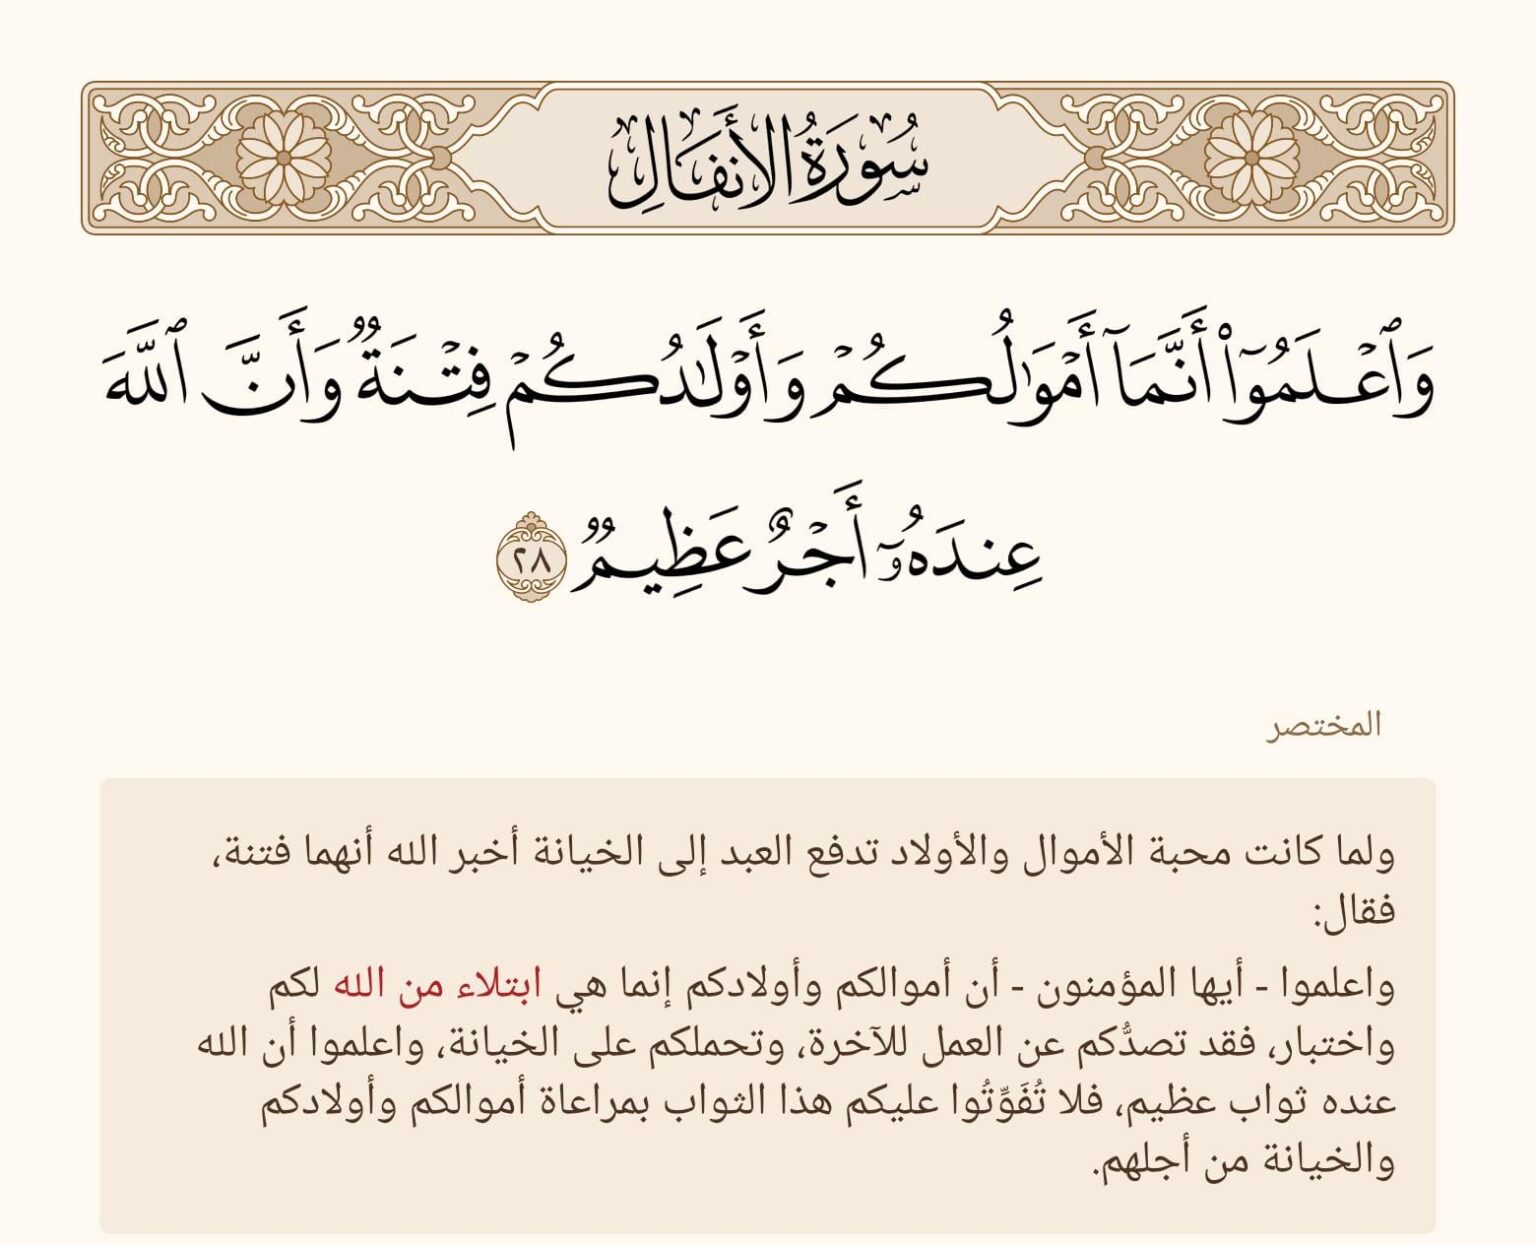 سُورَةُ الأَنفَالِ
وَٱعۡلَمُوٓاْ أَنَّمَآ أَمۡوَٰلُكُمۡ وَأَوۡلَٰدُكُمۡ فِتۡنَةٞ وَأَنَّ ٱللَّهَ
عِندَهُۥٓ أَجۡرٌ عَظِيمٞ ٢٨
المختصر
ولما كانت محبة الأموال والأولاد تدفع العبد إلى الخيانة أخبر الله أنهما فتنة،
فقال:
واعلموا - أيها المؤمنون - أن أموالكم وأولادكم إنما هي ابتلاء من الله لكم
واختبار، فقد تصدُّكم عن العمل للآخرة، وتحملكم على الخيانة، واعلموا أن الله
عنده ثواب عظيم، فلا تُفَوِّتُوا عليكم هذا الثواب بمراعاة أموالكم وأولادكم
والخيانة من أجلهم.